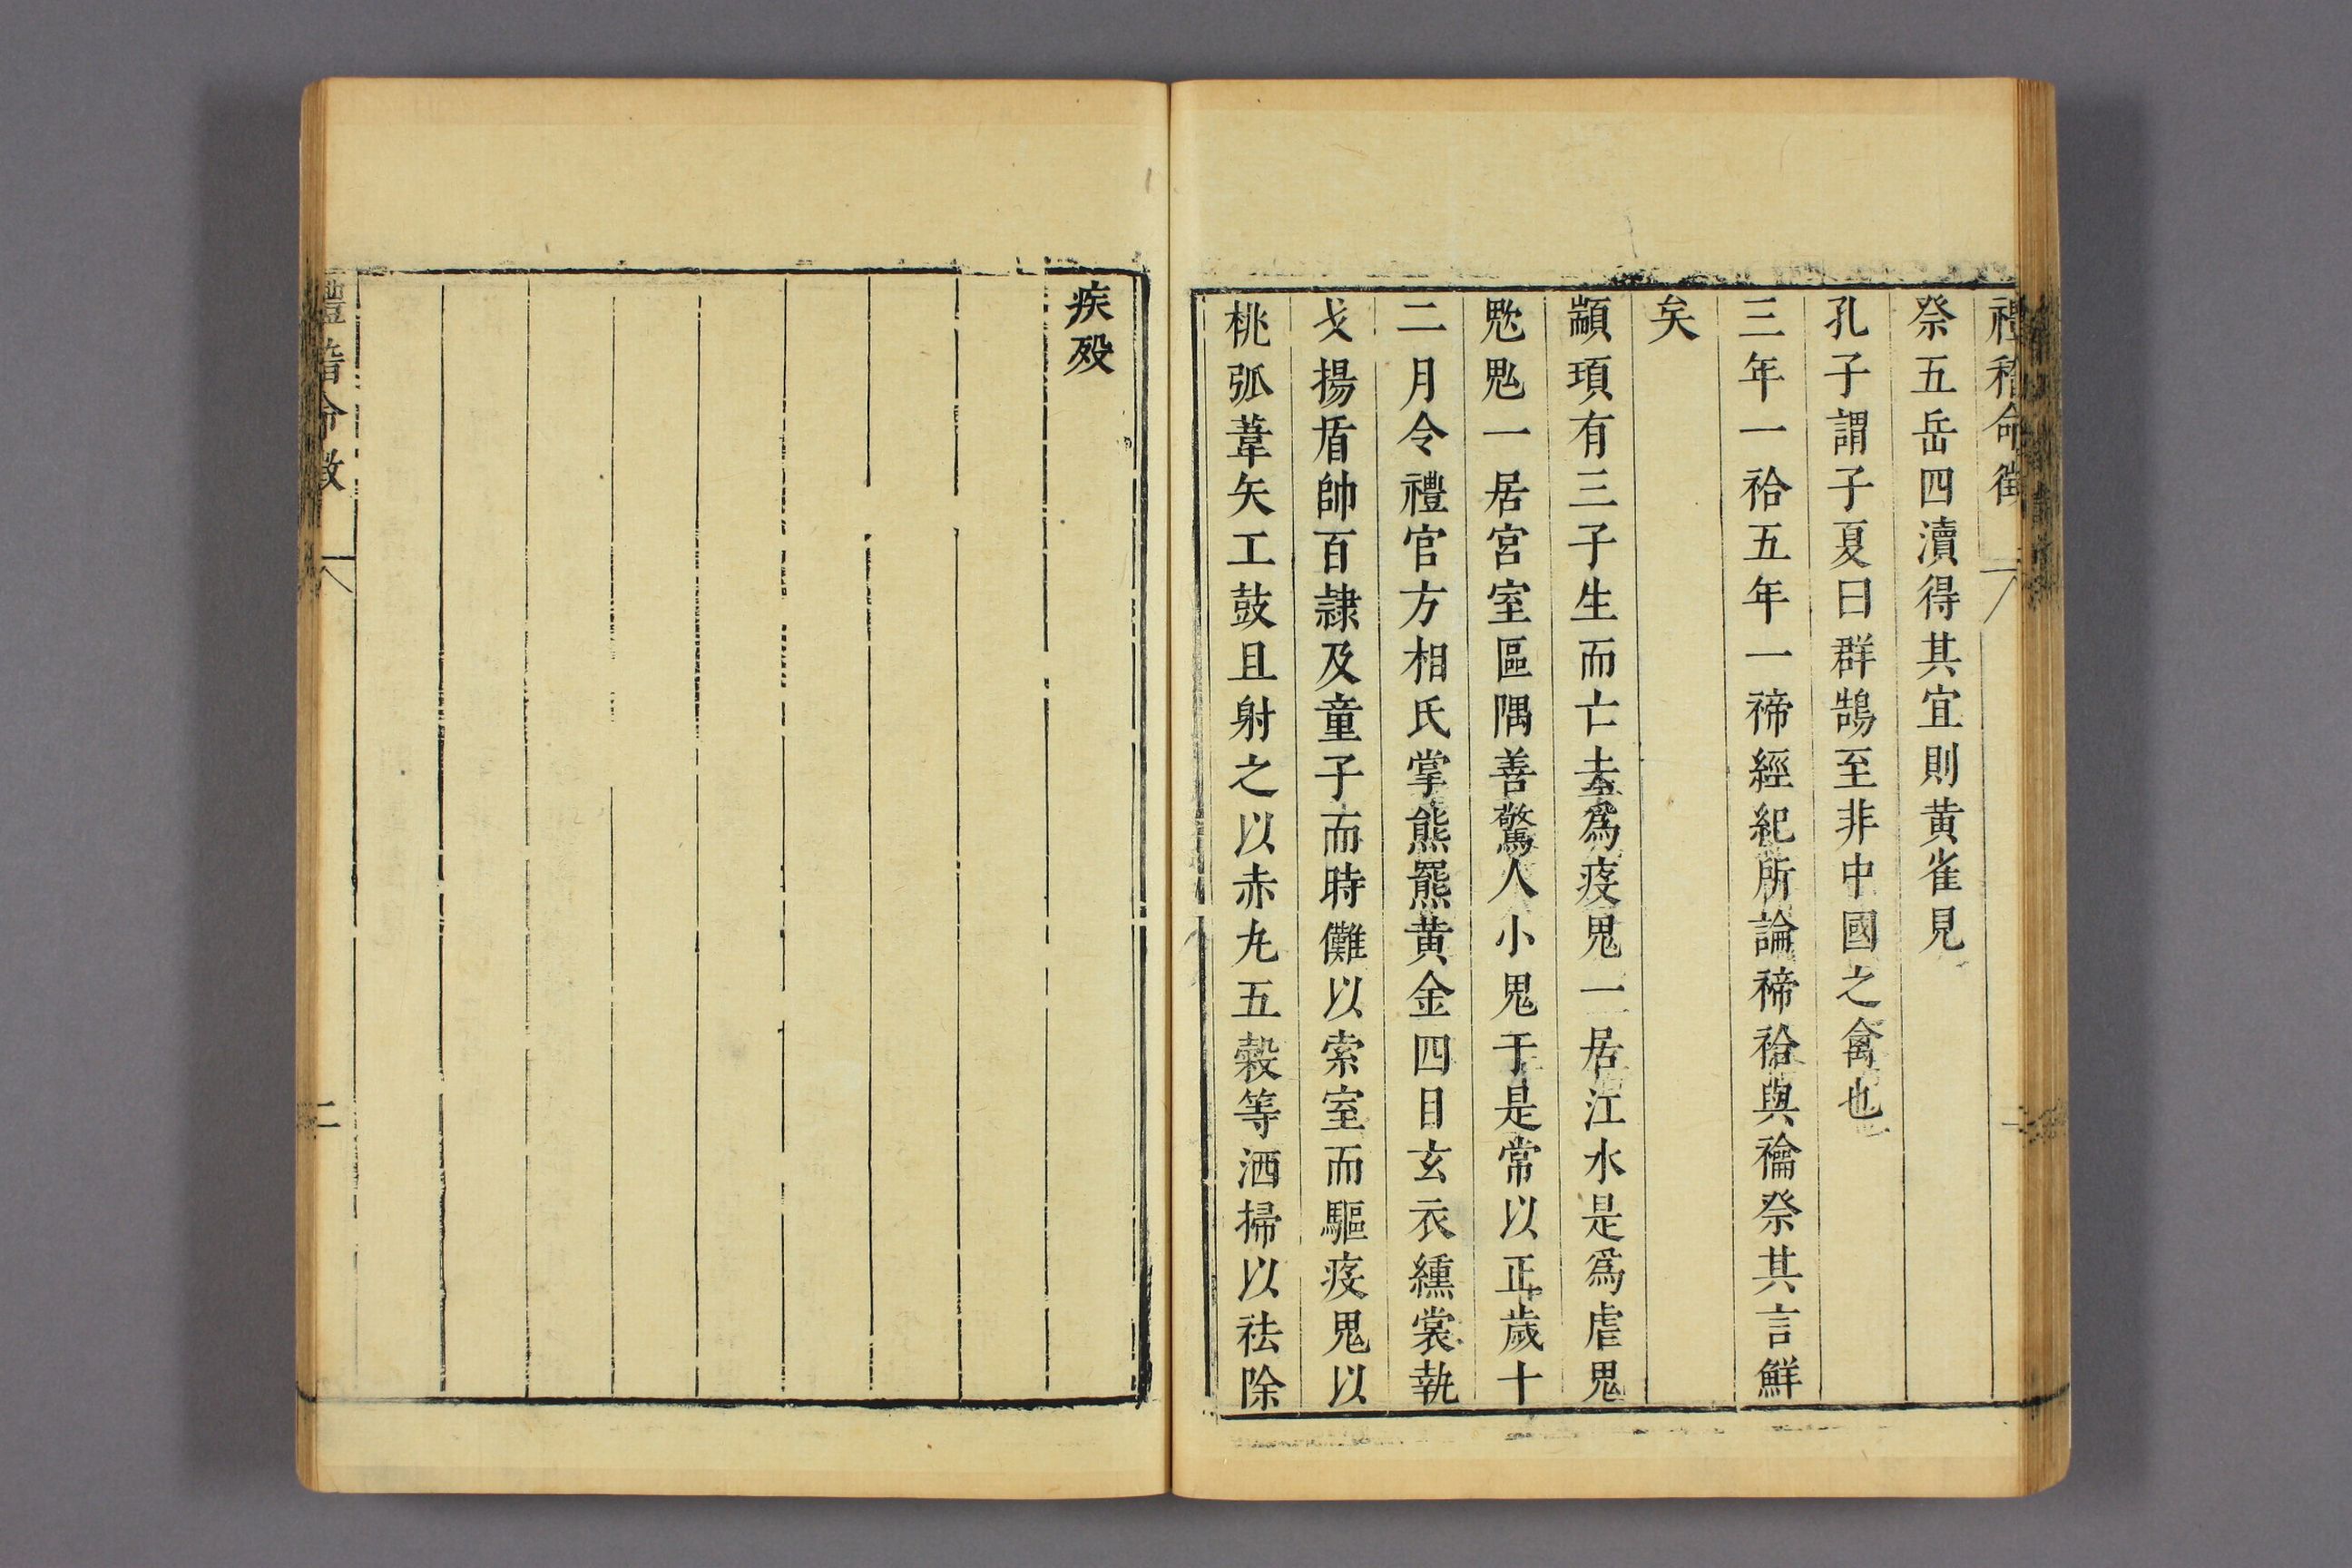 禮稽命徵
祭五岳四瀆得其宜則黄雀見
孔子謂子夏曰群鵠至非中國之禽也
三年一祫五年一禘經紀所論禘祫與禴祭其言鮮
矣
顓頊有三子生而亡去為疫鬼一居江水是爲虐鬼
魃鬼一居宮室區隅善驚人小鬼于是常以正歲十
二月令禮官方相氏掌熊羆黄金四目玄衣纁裳執
戈揚盾帥百隷及童子而時儺以索室而驅疫鬼以
桃弧葦矢工鼓且射之以赤丸五榖等洒掃以祛除
疾殁
禮稽命徵
二